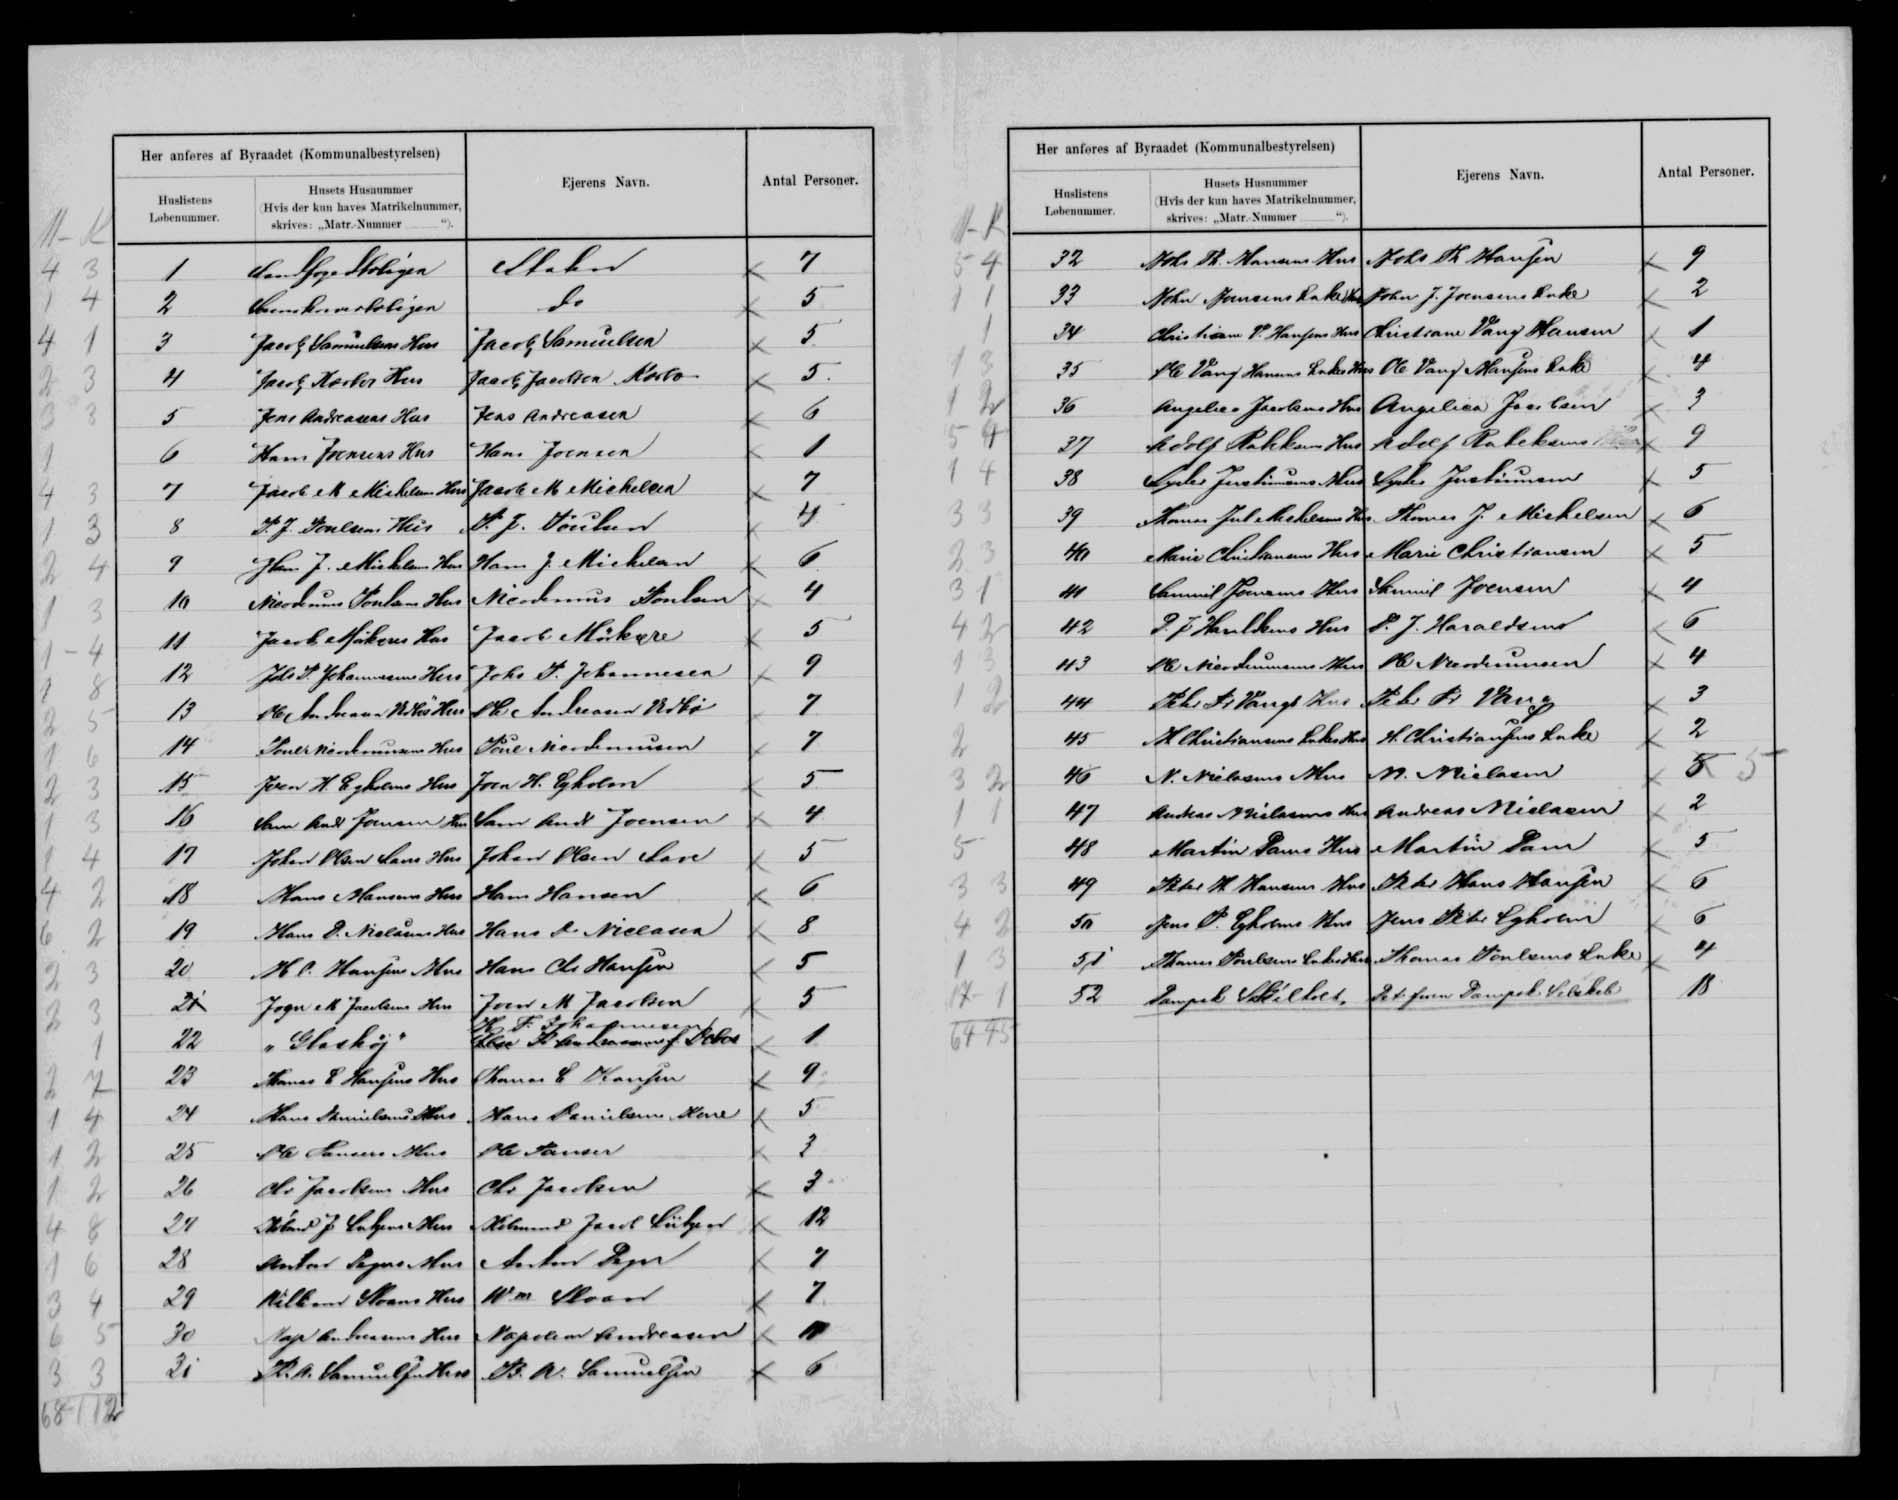 Her anføres af Byraadet (Kommunalbestyrelsen)
Ejerens Navn.
Antal Personer.
Huslistens Løbenummer.
Husets Husnummer
(Hvis der kun haves Matrikelnummer,
skrives: „Matr.-Nummer “).
M - K
4 3 1 7
1 4 2 do 5
4 1 3 Jacob Samuelsens Hus Jacob Samuelsen 5
2 3 4 Jacob Hus Jacob Jacobsen 5
3 3 5 Jens Andreasens Hus Jens Andreasen 6
1 6 Hans Joensens Hus Hans Joensen 1
4 3 7 Jacob M Mickelsens Hus Jacob M Mickelsen 7
1 3 8 P. J. Poulsens Hus P. J. Poulsen 4
2 4 9 Hans J. Mickelsens Hus Hans J. Mickelsen 6
1 3 10 Nicodemus Poulsens Hus Nicodemus Poulsen 4
1 - 4 11 Jacob Mørkøres Hus Jacob Mørkøre 5
8 12 Johs P. Johannesens Hus Johs P. Johannesen 9
2 5 13 Ole Andreasen Hus Ole Andreasen 7
1 6 14 Nicodemussens Hus Poul Nicodemussen 7
2 3 15 Joen H. Egholms Hus Joen H. Egholm 5
1 3 16 Sam Andr Joensen Hus Sam Andr Joensen 4
1 4 17 Johan Olsen Hus Johan Olsen 5
4 2 18 Hans Hansens Hus Hans Hansen 6
6 2 19 Hans D. Niclasens Hus Hans D. Niclasen 8
2 3 20 H C. Hansens Hus Hans Chr Hansen 5
2 3 21 Joen M Jacobsens Hus Joen M Jacobsen 5
1 22 „Glaskøj“ Johannesen 1
2 7 23 Thomas C Hansens Hus Thomas C Hansen 9
1 4 24 Hans Danielsens Hus Hans Danielsens Kone 5
1 2 25 Ole Hus Ole 3
1 2 26 Chr Jacobsens Hus Chr Jacobsen 3
4 8 27 J Lützens Hus Jacob Lützen 12
1 6 28 Anton Hus Anton 7
3 4 29 William Sloans Hus Wm Sloan 7
6 5 30 Nap Andreasens Hus Napoleon Andreasen 11
3 3 31 A. Samuelsens Hus A. Samuelsen 6
68 112
Her anføres af Byraadet (Kommunalbestyrelsen)
Ejerens Navn.
Antal Personer.
Huslistens Løbenummer.
Husets Husnummer
(Hvis der kun haves Matrikelnummer,
skrives: „Matr.-Nummer “).
M - K
5 4 32 Johs Th. Hansens Hus Johs Th Hansen 9
1 1 33 John Joensens Enke Hus John J. Joensens Enke 2
1 34 Christiane V. Hansens Hus Christiane Vang Hansen 1
1 3 35 Ole Vang Hansens Enkes Hus Ole Vang Hansens Enke 4
1 2 36 Angelica Jacobsens Hus Angelica Jacobsen 3
5 4 37 Adolf Hus Adolf 9
1 4 38 Justinussens Hus Justinussen 5
3 3 39 Thomas Jul Mickelsens Hus Thomas J. Mickelsen 6
2 3 40 Marie Christiansens Hus Marie Christiansen 5
3 1 41 Samuel Joensens Hus Samuel Joensen 4
4 2 42 P. J Haraldsens Hus P. J. Haraldsens 6
1 3 43 Ole Nicodemussens Hus Ole Nicodemussen 4
1 2 44 Peter Fr Vangs Hus Peter Fr Vang 3
2 45 H. Christiansens Enkes Hus H. Christiansens Enke 2
3 2 46 N. Niclasens Hus N. Niclasen 5
1 1 47 Andreas Niclasens Hus Andreas Niclasen 2
5 48 Martin Dams Hus Martin Dam 5
3 3 49 Peter H Hansens Hus Peter Hans Hansen 6
4 2 50 Jens P. Egholms Hus Jens Peter Egholm 6
1 3 51 Thomas Poulsens Enkes Hus Thomas Poulsens Enke 4
17 - 1 52 Dampsk. Det foren Dampsk. Selskab 18
64 45